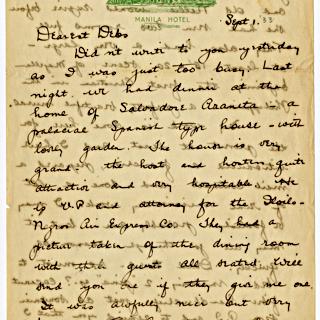 MANILA HOTEL
Sept 1. 33
Dearest Debs
Didn't write to you yesterday
as I was just too busy. Last
night we had dinner at the
home of Salvadore Araneta - a
palacial Spanish type house - with
lovely garden. The house is very
grand - the host and hostess quite
attractive and very hospitable. He
is V.P and attorney for the Iloilo-
Negros Air Express Co. They had a
picture taken of the dining room
with the guests all seated. Will
send you one if they give me one.
It was awfully nice but very